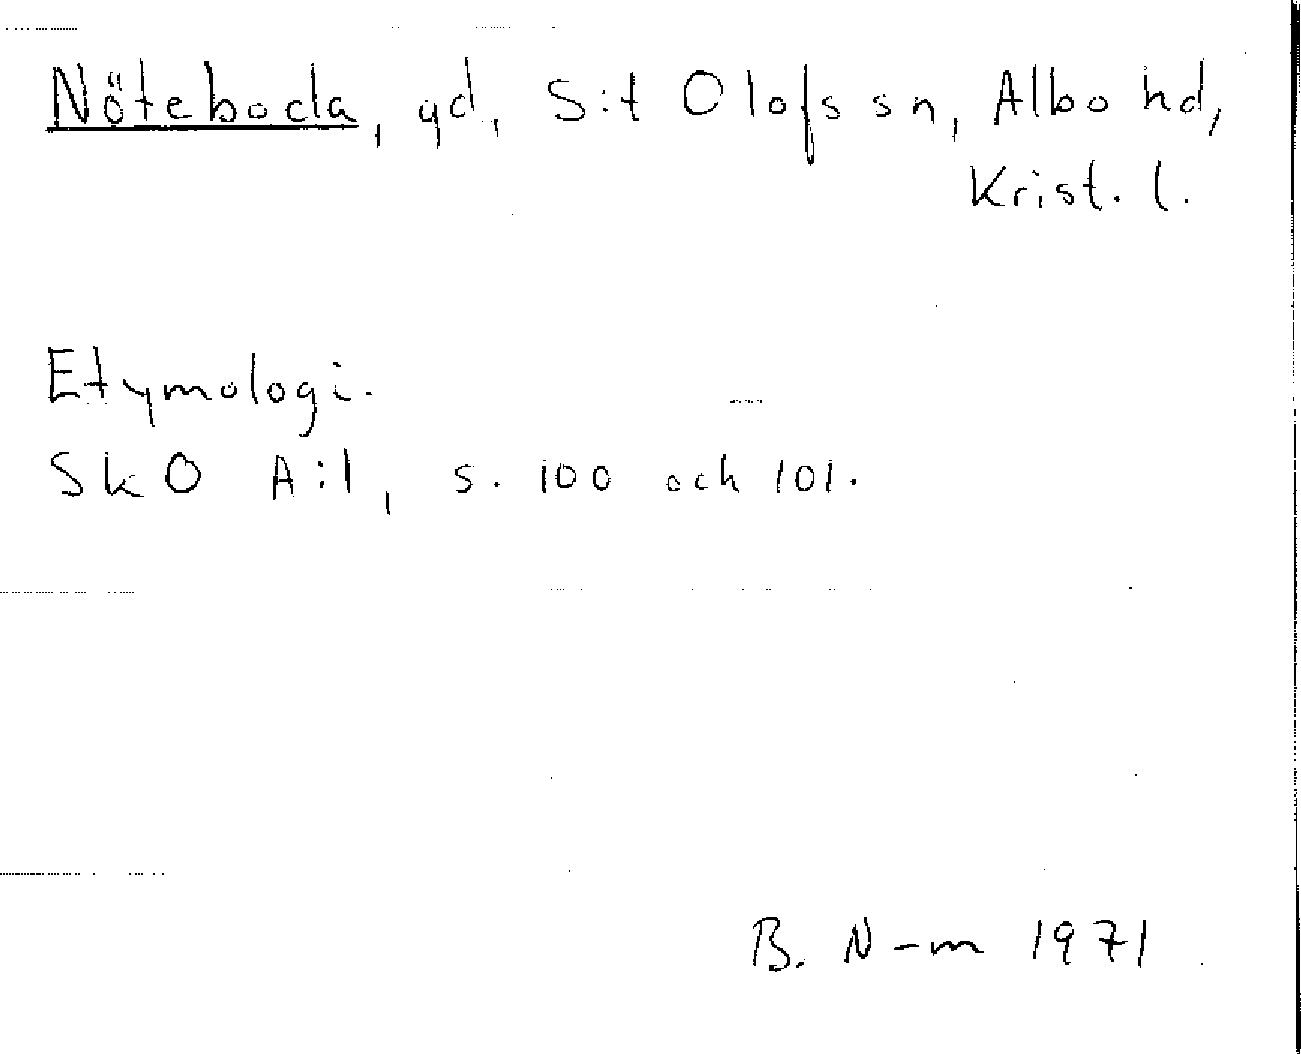 Nöteboda, gd, S:t Olofs sn, Albo hd,
Krist. l.
Etymologi.
SkO A:1, s. 100 och 101.
B. N-m 1971